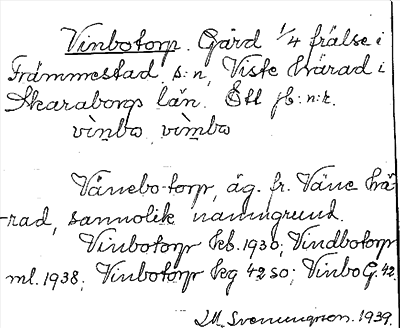 Vinbotorp. Gård 1/4 frälse i
Främmestad s:n, Viste härad i
Skaraborgs län. Ett jb:n:r.
vìnbo, vìmbo
Vänebo-torp, äg. fr. Väne hä-
-rad, sannolik namngrund.
Vinbotorp kb. 1930; Vindbotorp
ml. 1938; Vinbotorp kg 42 SO; Vinbo G. 42.
J.M. Svenungson. 1939.